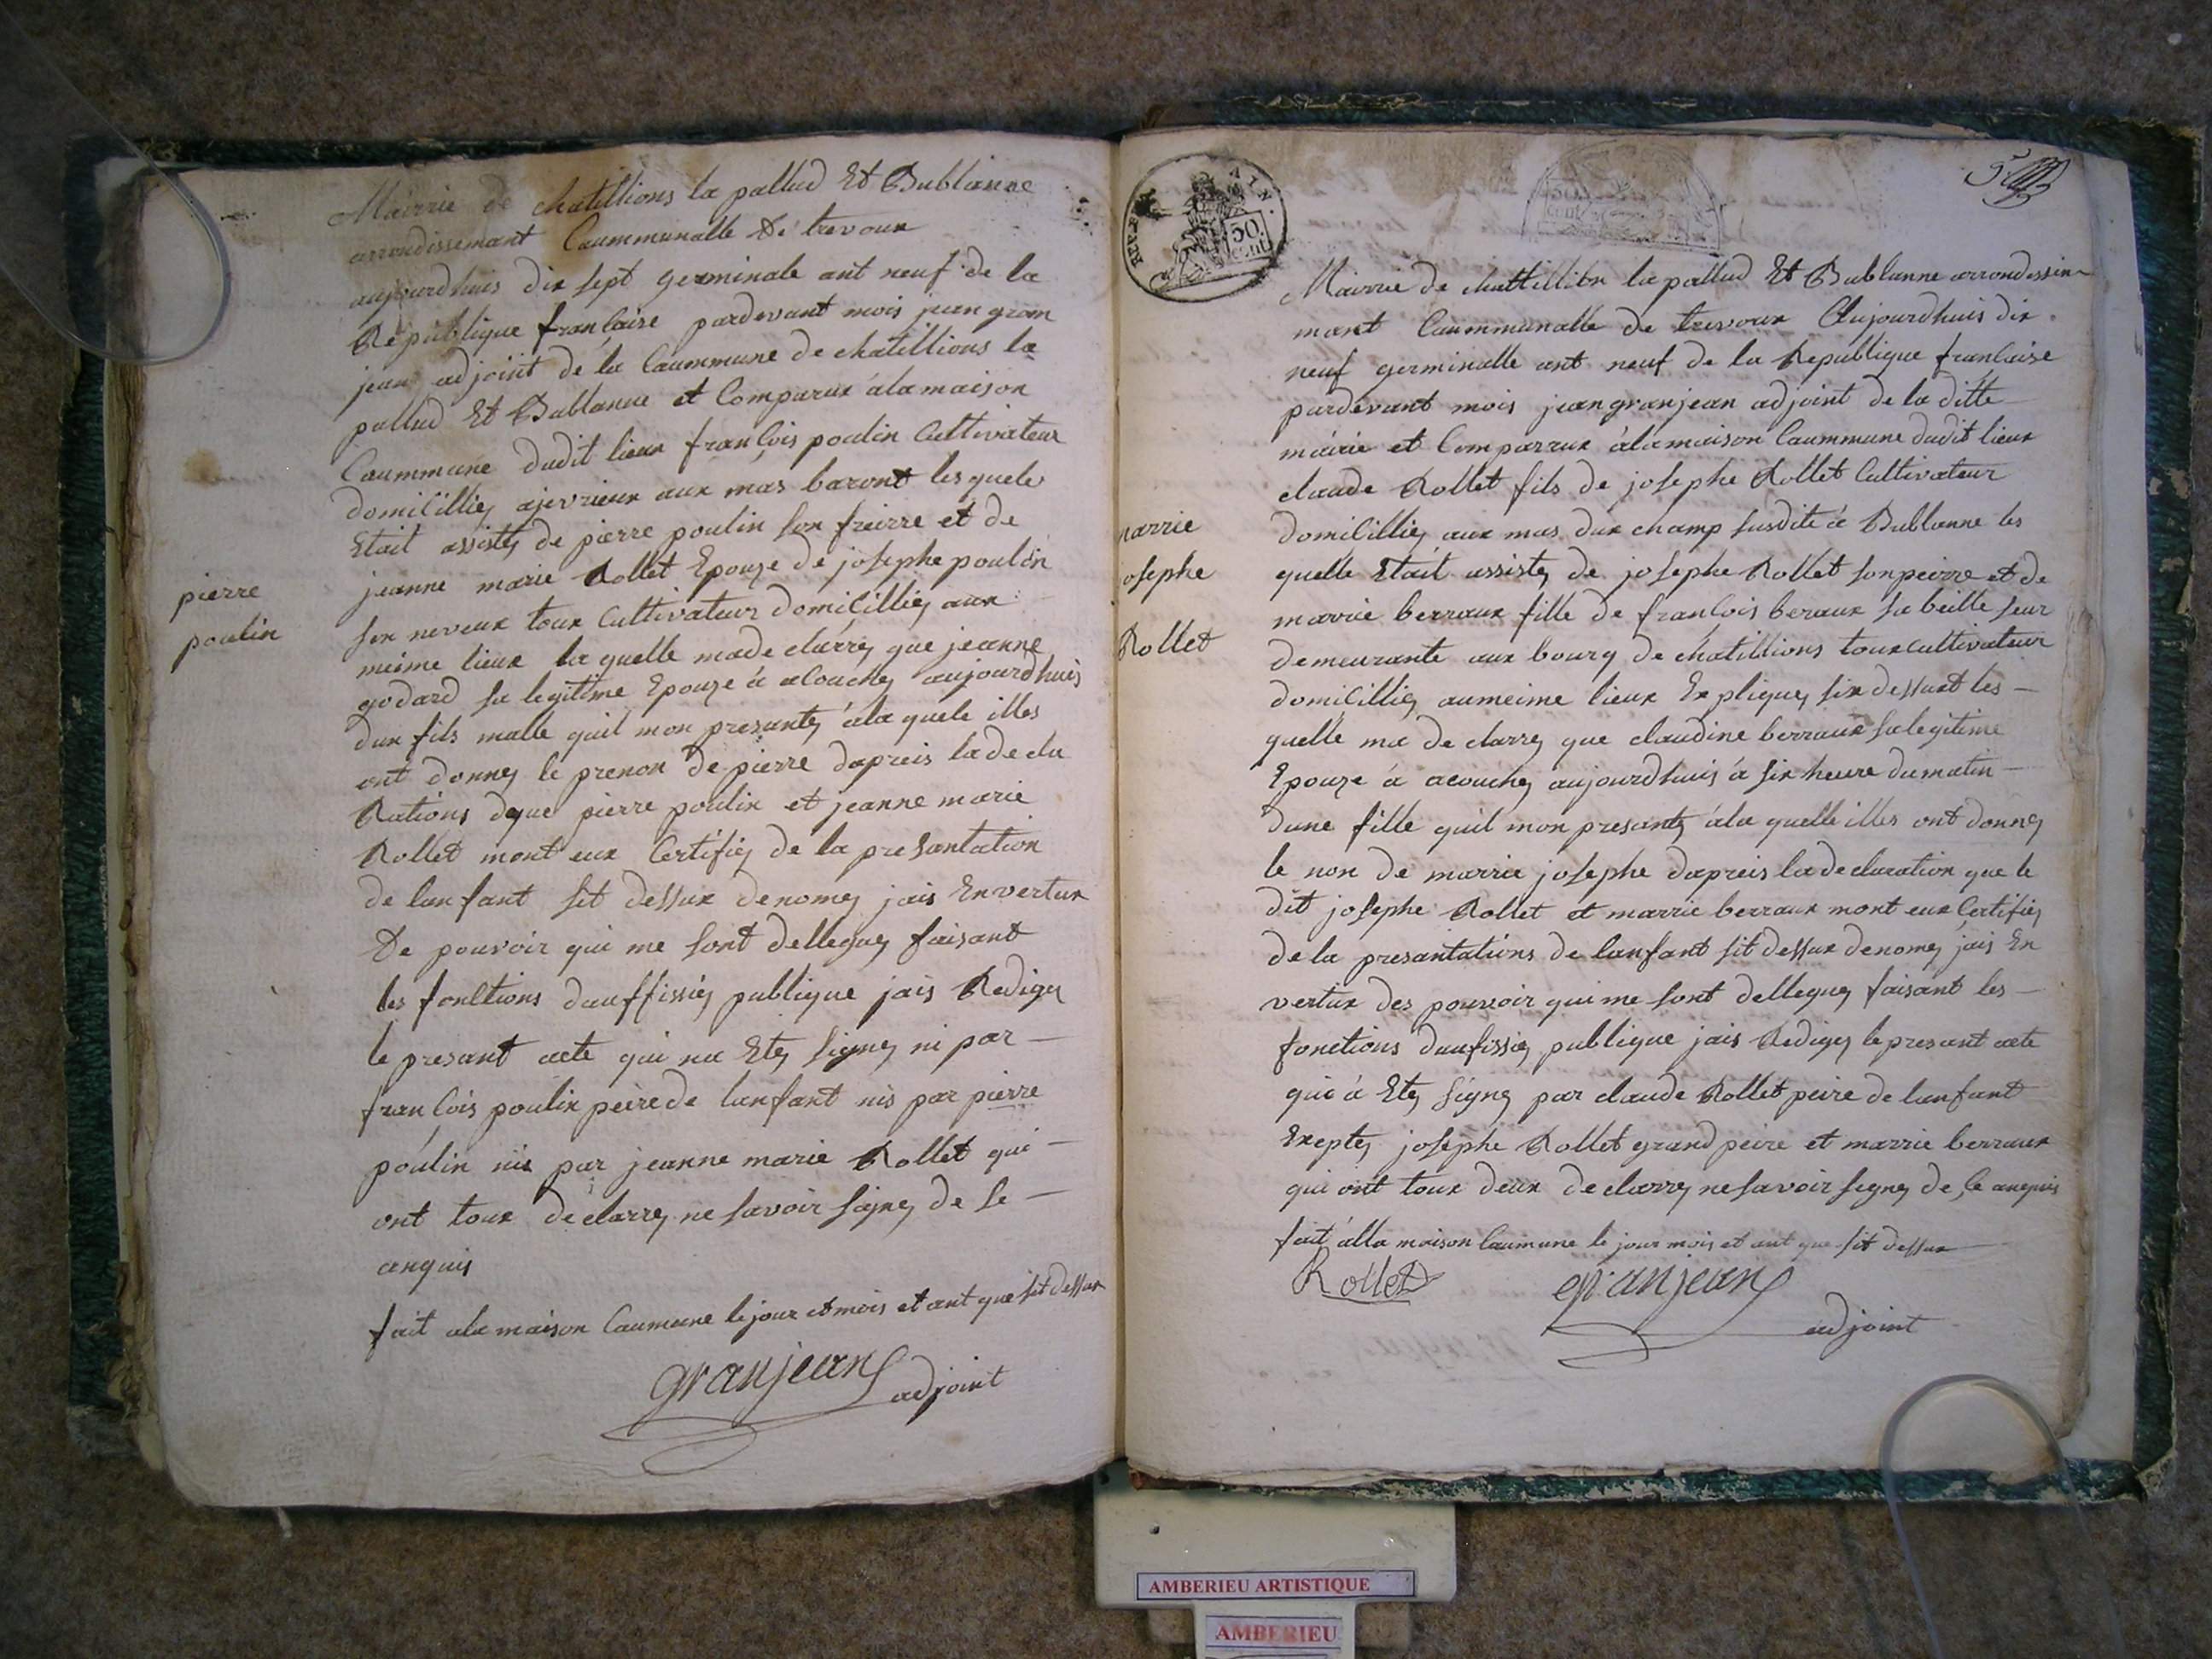 Mairrie de chatillions la pallud Et Bublanne
arrondissemant Caummunalle De trevoux
aujourdhuis dix sept germinale ant neuf de la
Republique française pardevant mois jean gran
jean adjoint de la Caummune de chatillions la
pallud Et Bublanne et Comparux à la maison
Caummune dudit lieux françois poulin Cultivateur
domicilliez ajevrieux aux mas baront les quele
Etait assistez de pierre poulin son freirre et de
jeanne marie Rollet Epouze de josephe poulin
son neveux toux Cultivateur domicilliez aux
meime lieux la quelle made clarrez que jeanne
godard sa legitime Epouze à acouchez aujourdhuis
dun fils malle quil mon presantez à la quele illes
ont donnez le prenon de pierre dapreis la de cla
Rations deque pierre poulin et jeanne marie
Rollet mont eux Certifiez de la presantation
de lanfant sit dessux denomez jais Envertux
De pouvoir qui me sont delleguez faisant
les fonctions dauffissiez publique jais Redigez
le presant acte qui na Etez signez ni par
françois poulin peire de lanfant nis par pierre
poulin nis par jeanne marie Rollet qui
ont toux declarrez ne savoir signez de se
anquis
fait ala maison Caumune le jour et mois et ant que sit dessux
granjean adjoint
pierre
poulin
AIN.
50.
cent
5
Mairrie de chattillion la pallud Et Bublanne arrondissin
mant Caummunalle de trevoux Aujourdhuis dix
neuf germinalle ant neuf de la Republique française
pardevant mois jean granjean adjoint de la ditte
máirie et Comparrux à la maison Caummune dudit lieux
claude Rollet fils de josephe Rollet Cultivateur
domicilliez aux mas dux champ susdite à Bublanne les
quelle Etait assistez de josephe Rollet son peirre et de
marrie berraux fille de françois beraux sa beille seur
demeurante aux bourg de chatillions toux cultivateur
domicilliez aumeime lieux Expliquez six dessuxt les
quelle ma de clarrez que claudine berraux sa legitime
Epouze à acouchez aujourdhuis à six heure du matin
dune fille quil mon presantez à la quelle illes ont donnez
le non de marrie josephe dapreis la declaration que le
dit josephe Rollet et marrie berraux mont eux Certifiez
de la presantations de lanfant sit dessux denomez jais En
vertux des pouvoir qui me sont delleguez faisant les
fonctions daufissiez publique jais Redigez le presant acte
qui à Etez signez par claude Rollet peire de lanfant
Exeptez josephe Rollet grand peire et marrie berraux
qui ont toux deux declarrez ne savoir signez de se anquis
fait à lla maison Caumune le jour mois et ant que sit dessux
Rollet granjean
adjoint
marrie
josephe
Rollet
AMBERIEU ARTISTIQUE
AMBERIEU